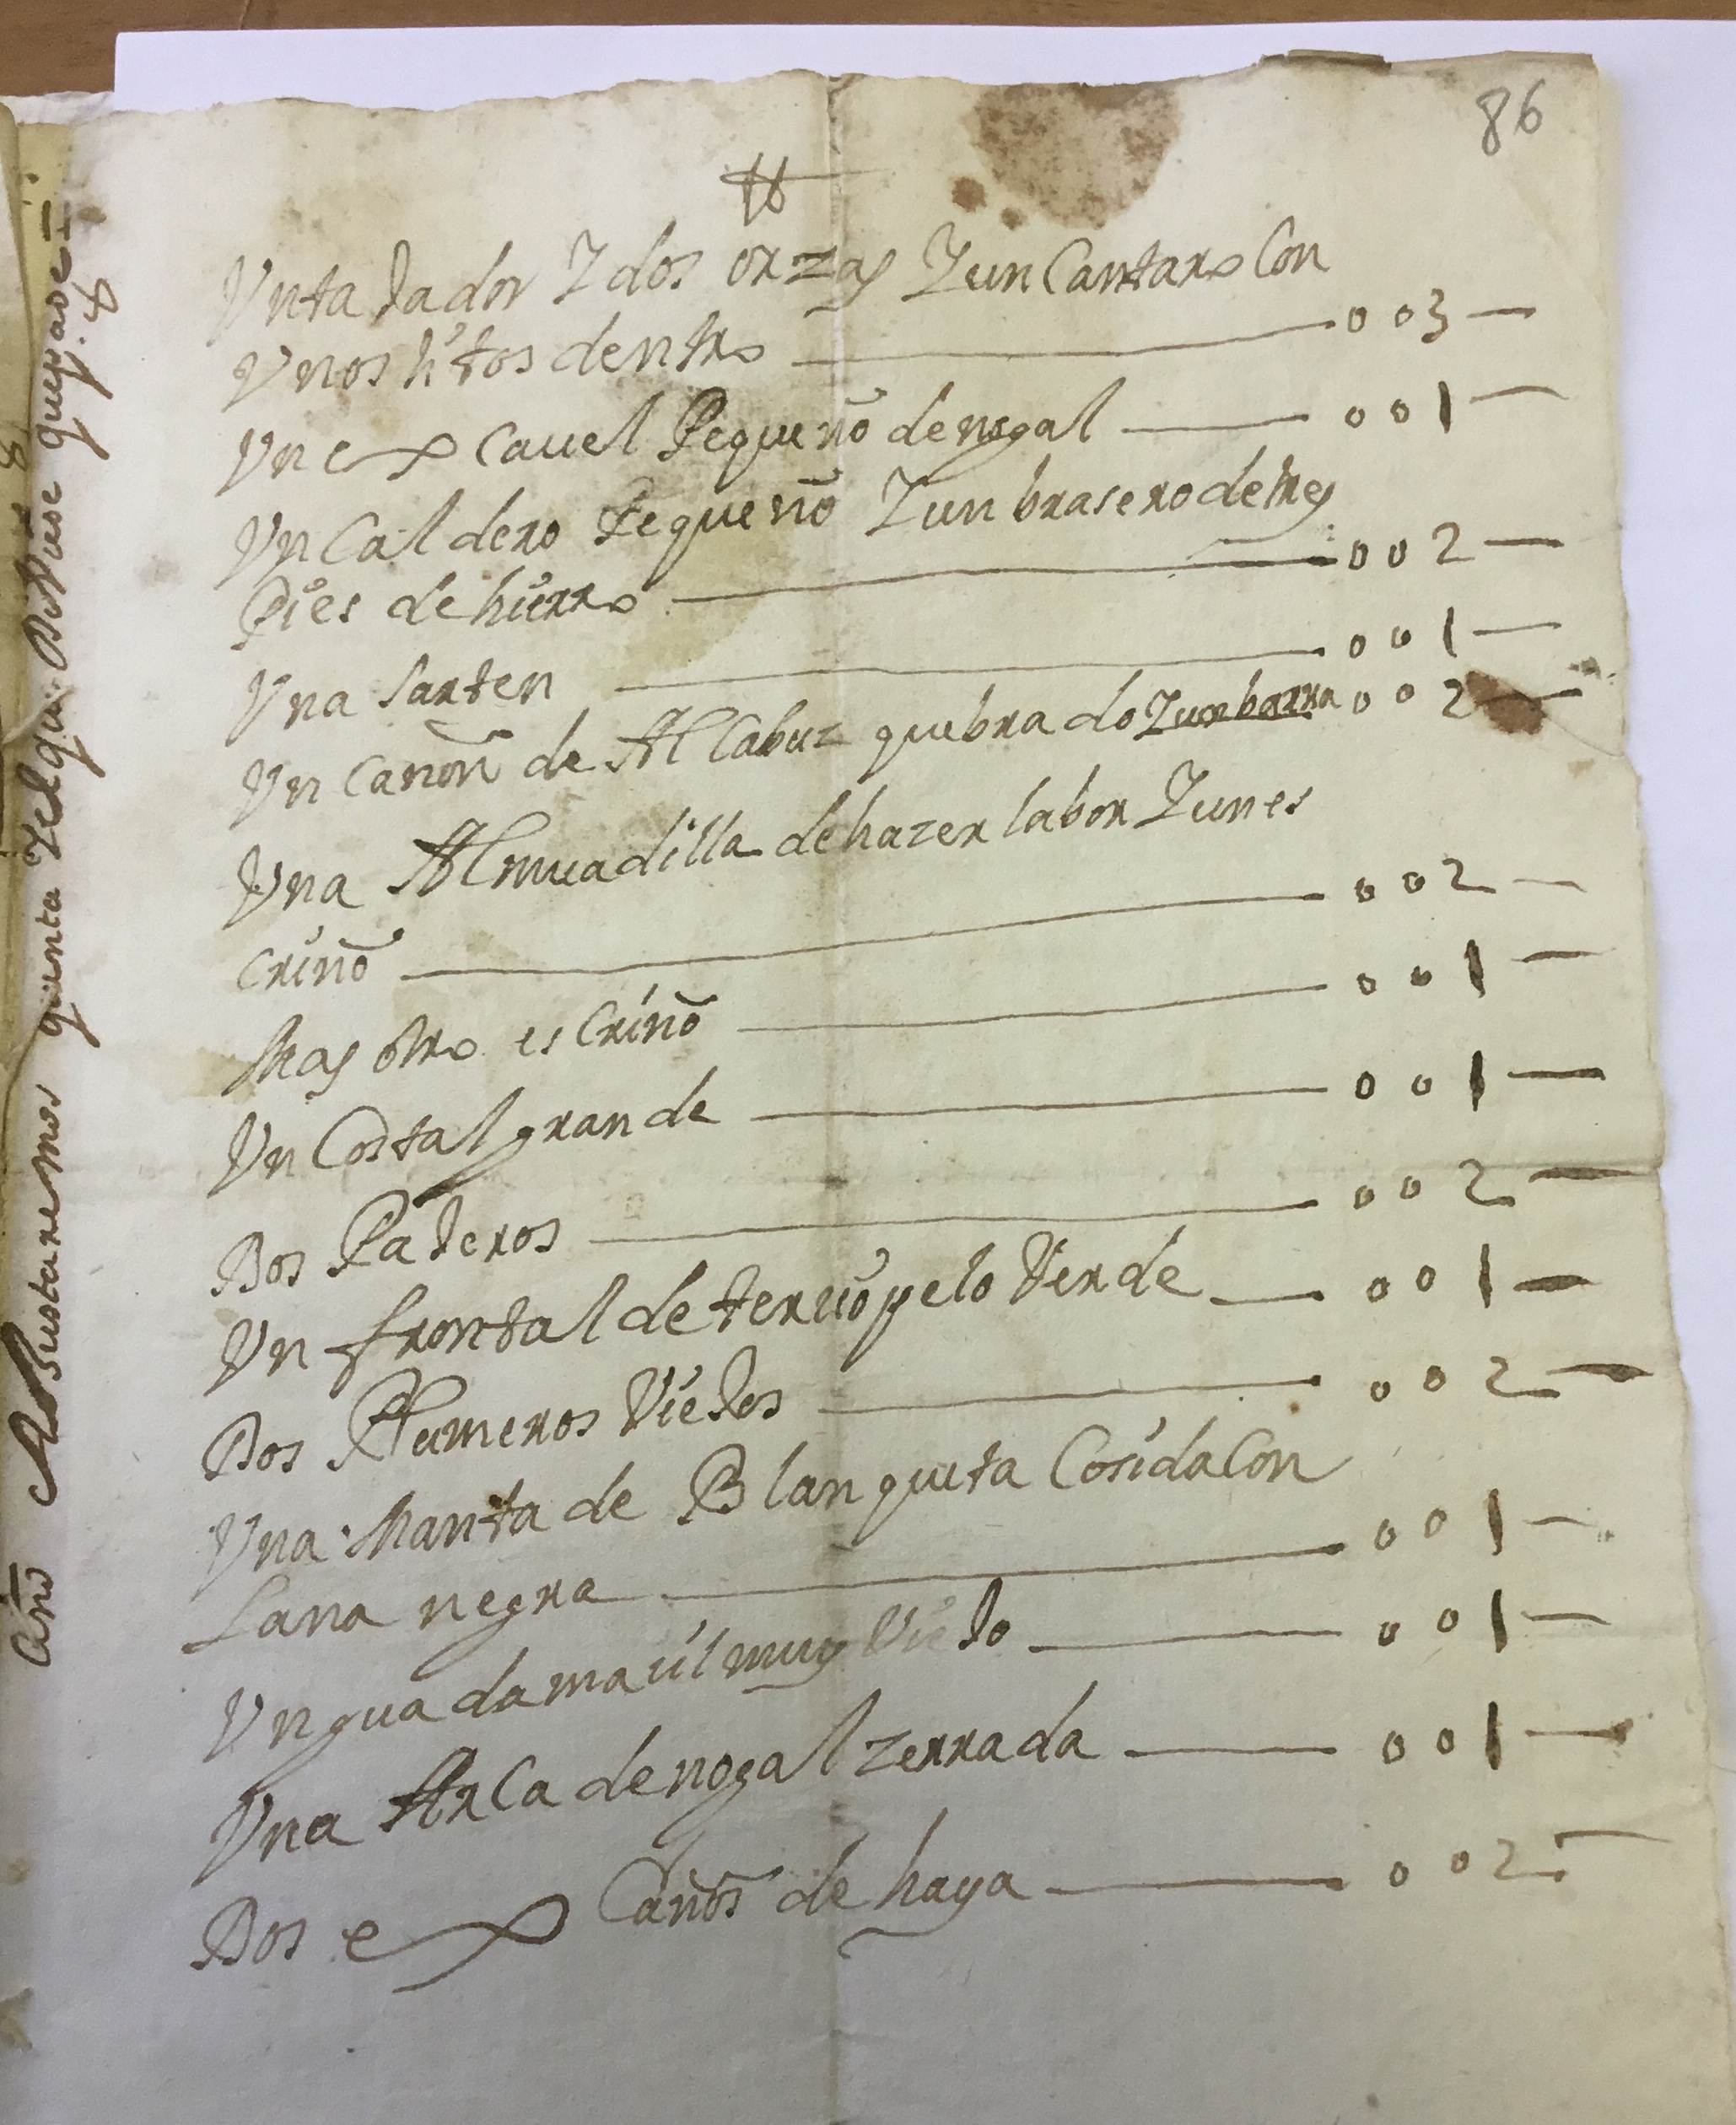 86
Vn taJador Y dos orzas Y un Cantaro Con
Vnos hitos dentro 003
Vn escauel Pequeño de nogal 001
Vn Caldero Pequeño Y un brasero de tres
Pies de hierro 002
Vna Sarten 001
Vn Cañon de AlCabuz quebrado Y un barra 002
Vna Almuadilla de hazer labor Y un es
criño 002
Mas otro esCriño 001
Vn Costal grande 001
Dos PaJeros 002
Vn frontal de terciopelo Verde 001
Dos Plumeros VieJos 002
Vna Manta de Blanquita Cosida Con
Lana negra 001
Vn guadamail muy VieJo 001
Vna ArCa de nogal zerrada 001
Dos esCaños de haya 002
año
quenta Y el que